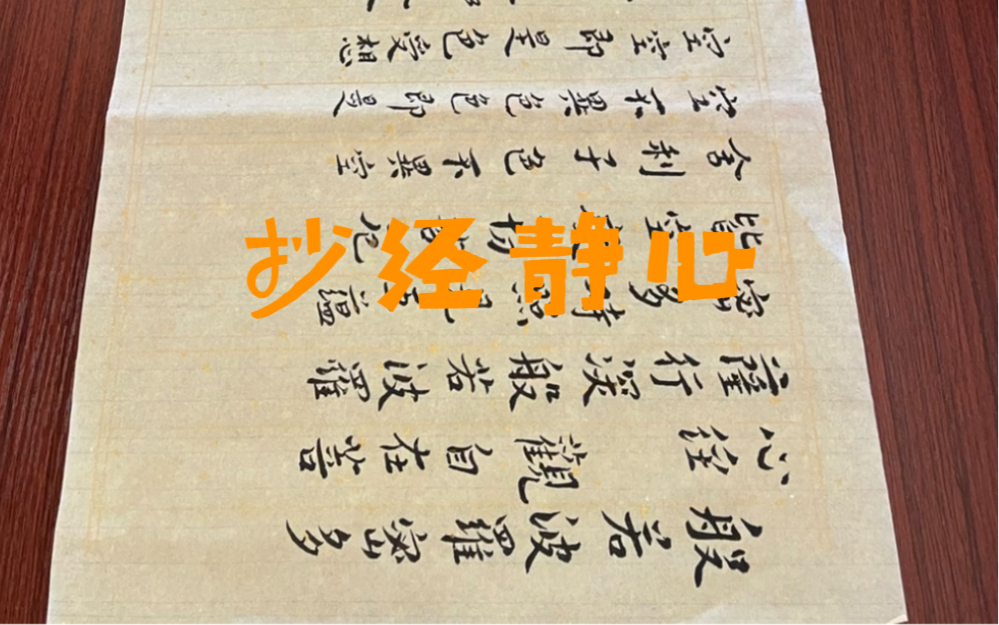 抄经静心
般若波羅密多
心經 觀自在菩
薩行深般若波羅
密多時照見五蘊
皆空度切苦厄
舍利子色不異空
空不異色色即是
空空即是色受想